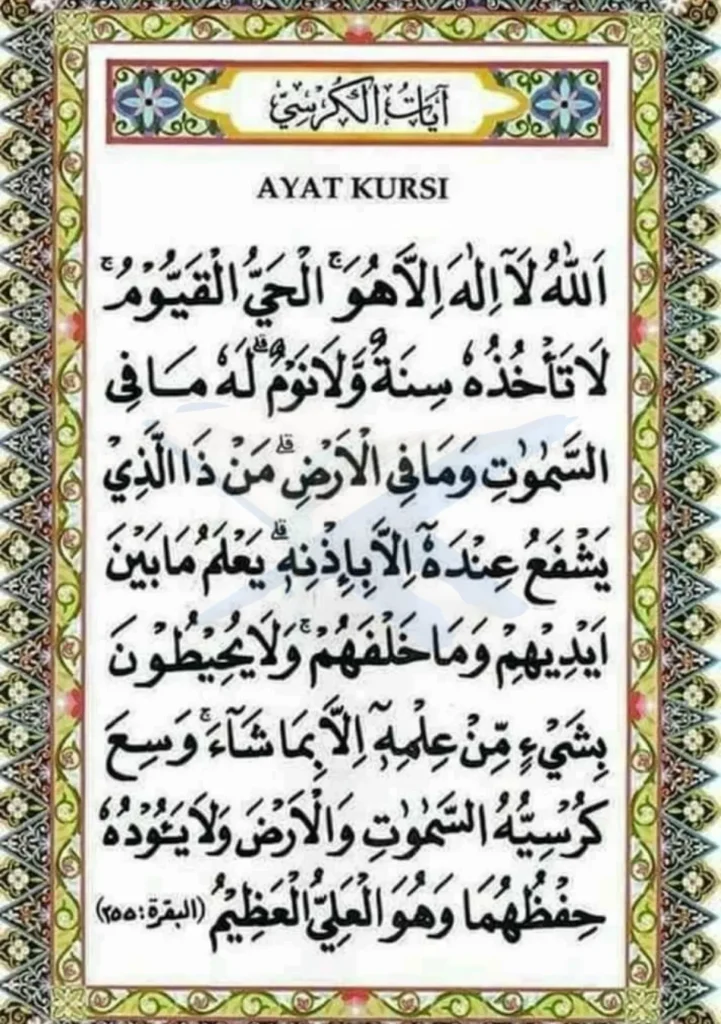 آيَاتُ الْكُرْسِيِّ
AYAT KURSI
اَللّٰهُ لَآ اِلٰهَ اِلَّا هُوَۚ اَلْحَيُّ الْقَيُّوْمُ ۚ
لَا تَأْخُذُهٗ سِنَةٌ وَّلَا نَوْمٌ ۗ لَهٗ مَا فِى
السَّمٰوٰتِ وَمَا فِى الْاَرْضِ ۗ مَنْ ذَا الَّذِيْ
يَشْفَعُ عِنْدَهٗٓ اِلَّا بِاِذْنِهٖ ۗ يَعْلَمُ مَا بَيْنَ
اَيْدِيْهِمْ وَمَا خَلْفَهُمْ ۚ وَلَا يُحِيْطُوْنَ
بِشَيْءٍ مِّنْ عِلْمِهٖٓ اِلَّا بِمَا شَآءَ ۚ وَسِعَ
كُرْسِيُّهُ السَّمٰوٰتِ وَالْاَرْضَ وَلَا يَـُٔوْدُهٗ
حِفْظُهُمَا وَهُوَ الْعَلِيُّ الْعَظِيْمُ (البقرة : ٢٥٥)